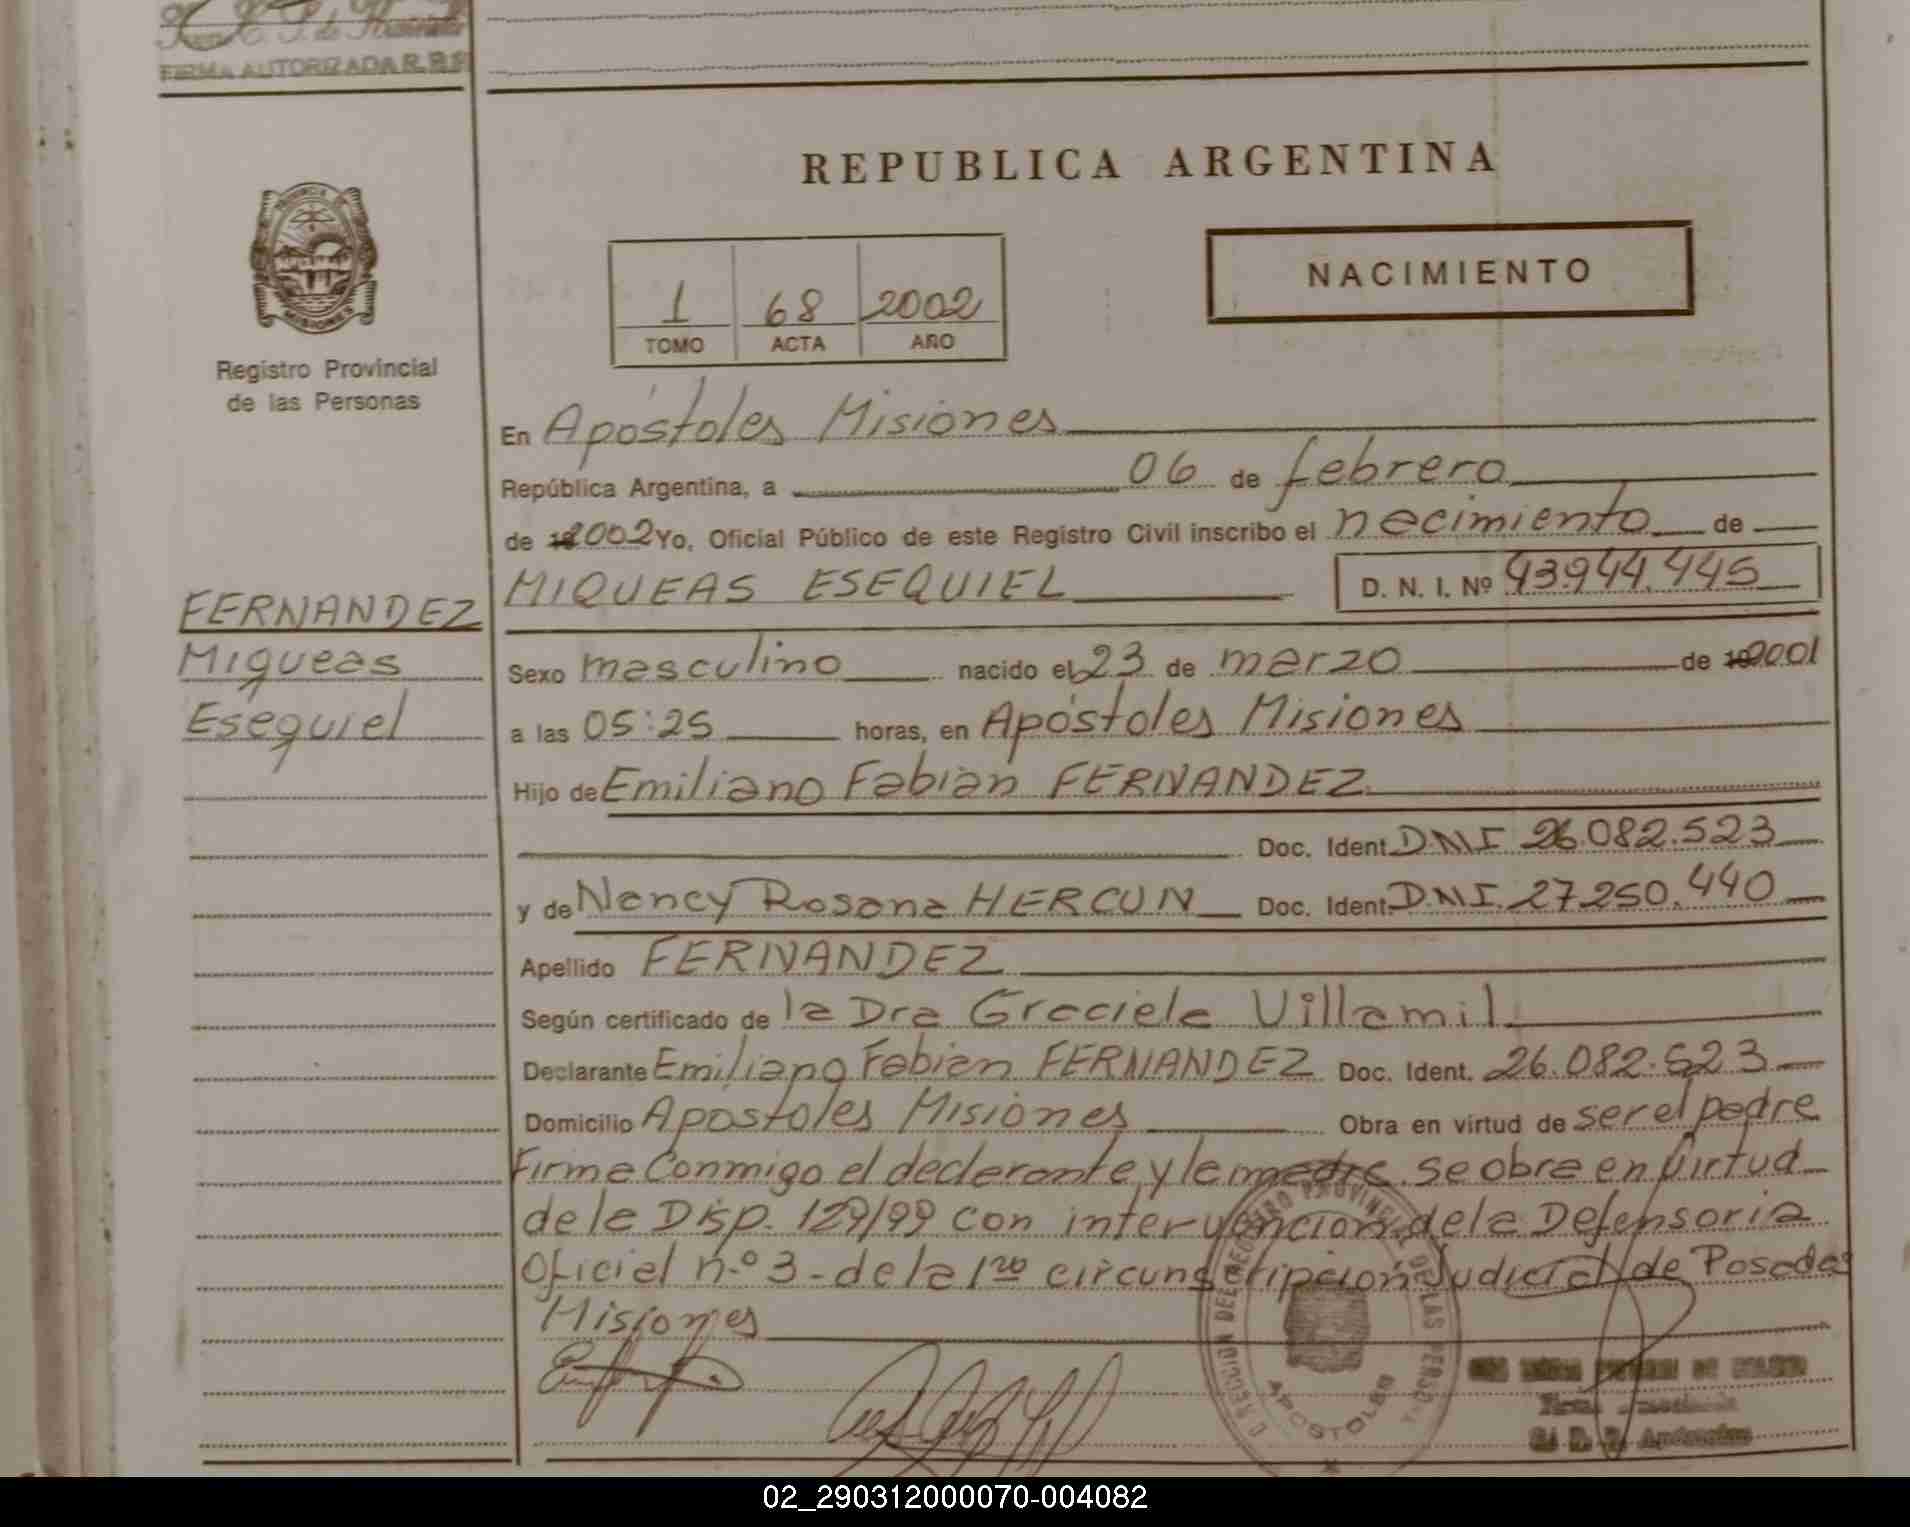 FIRMA AUTORIZADA R.P.P.
REPUBLICA ARGENTINA
NACIMIENTO
1 68 2002
TOMO ACTA AÑO
MISIONES
Registro Provincial
de las Personas
En Apóstoles Misiones
República Argentina, a 06 de febrero
de 2002 Yo, Oficial Público de este Registro Civil inscribo el nacimiento de
MIQUEAS ESEQUIEL D. N. I. Nº 43.944.445
FERNANDEZ
Miqueas
Esequiel
Sexo masculino nacido el 23 de marzo de 2001
a las 05:25 horas, en Apóstoles Misiones
Hijo de Emiliano Fabian FERNANDEZ
Doc. Ident. DNI 26.082.523
y de Nancy Rosana HERCUN Doc. Ident. DNI. 27.250.440
Apellido FERNANDEZ
Según certificado de la Dra Graciela Villamil
Declarante Emiliano Fabian FERNANDEZ Doc. Ident. 26.082.523
Domicilio Apostoles Misiones Obra en virtud de ser el padre
Firma Conmigo el declarante y la madre. Se obra en virtud
de la Disp. 129/99 con intervención de la Defensoria
Oficial n.º 3 - de la 1ra circunscripción Judicial de Posadas
Misiones
APOSTOLES
02_290312000070-004082